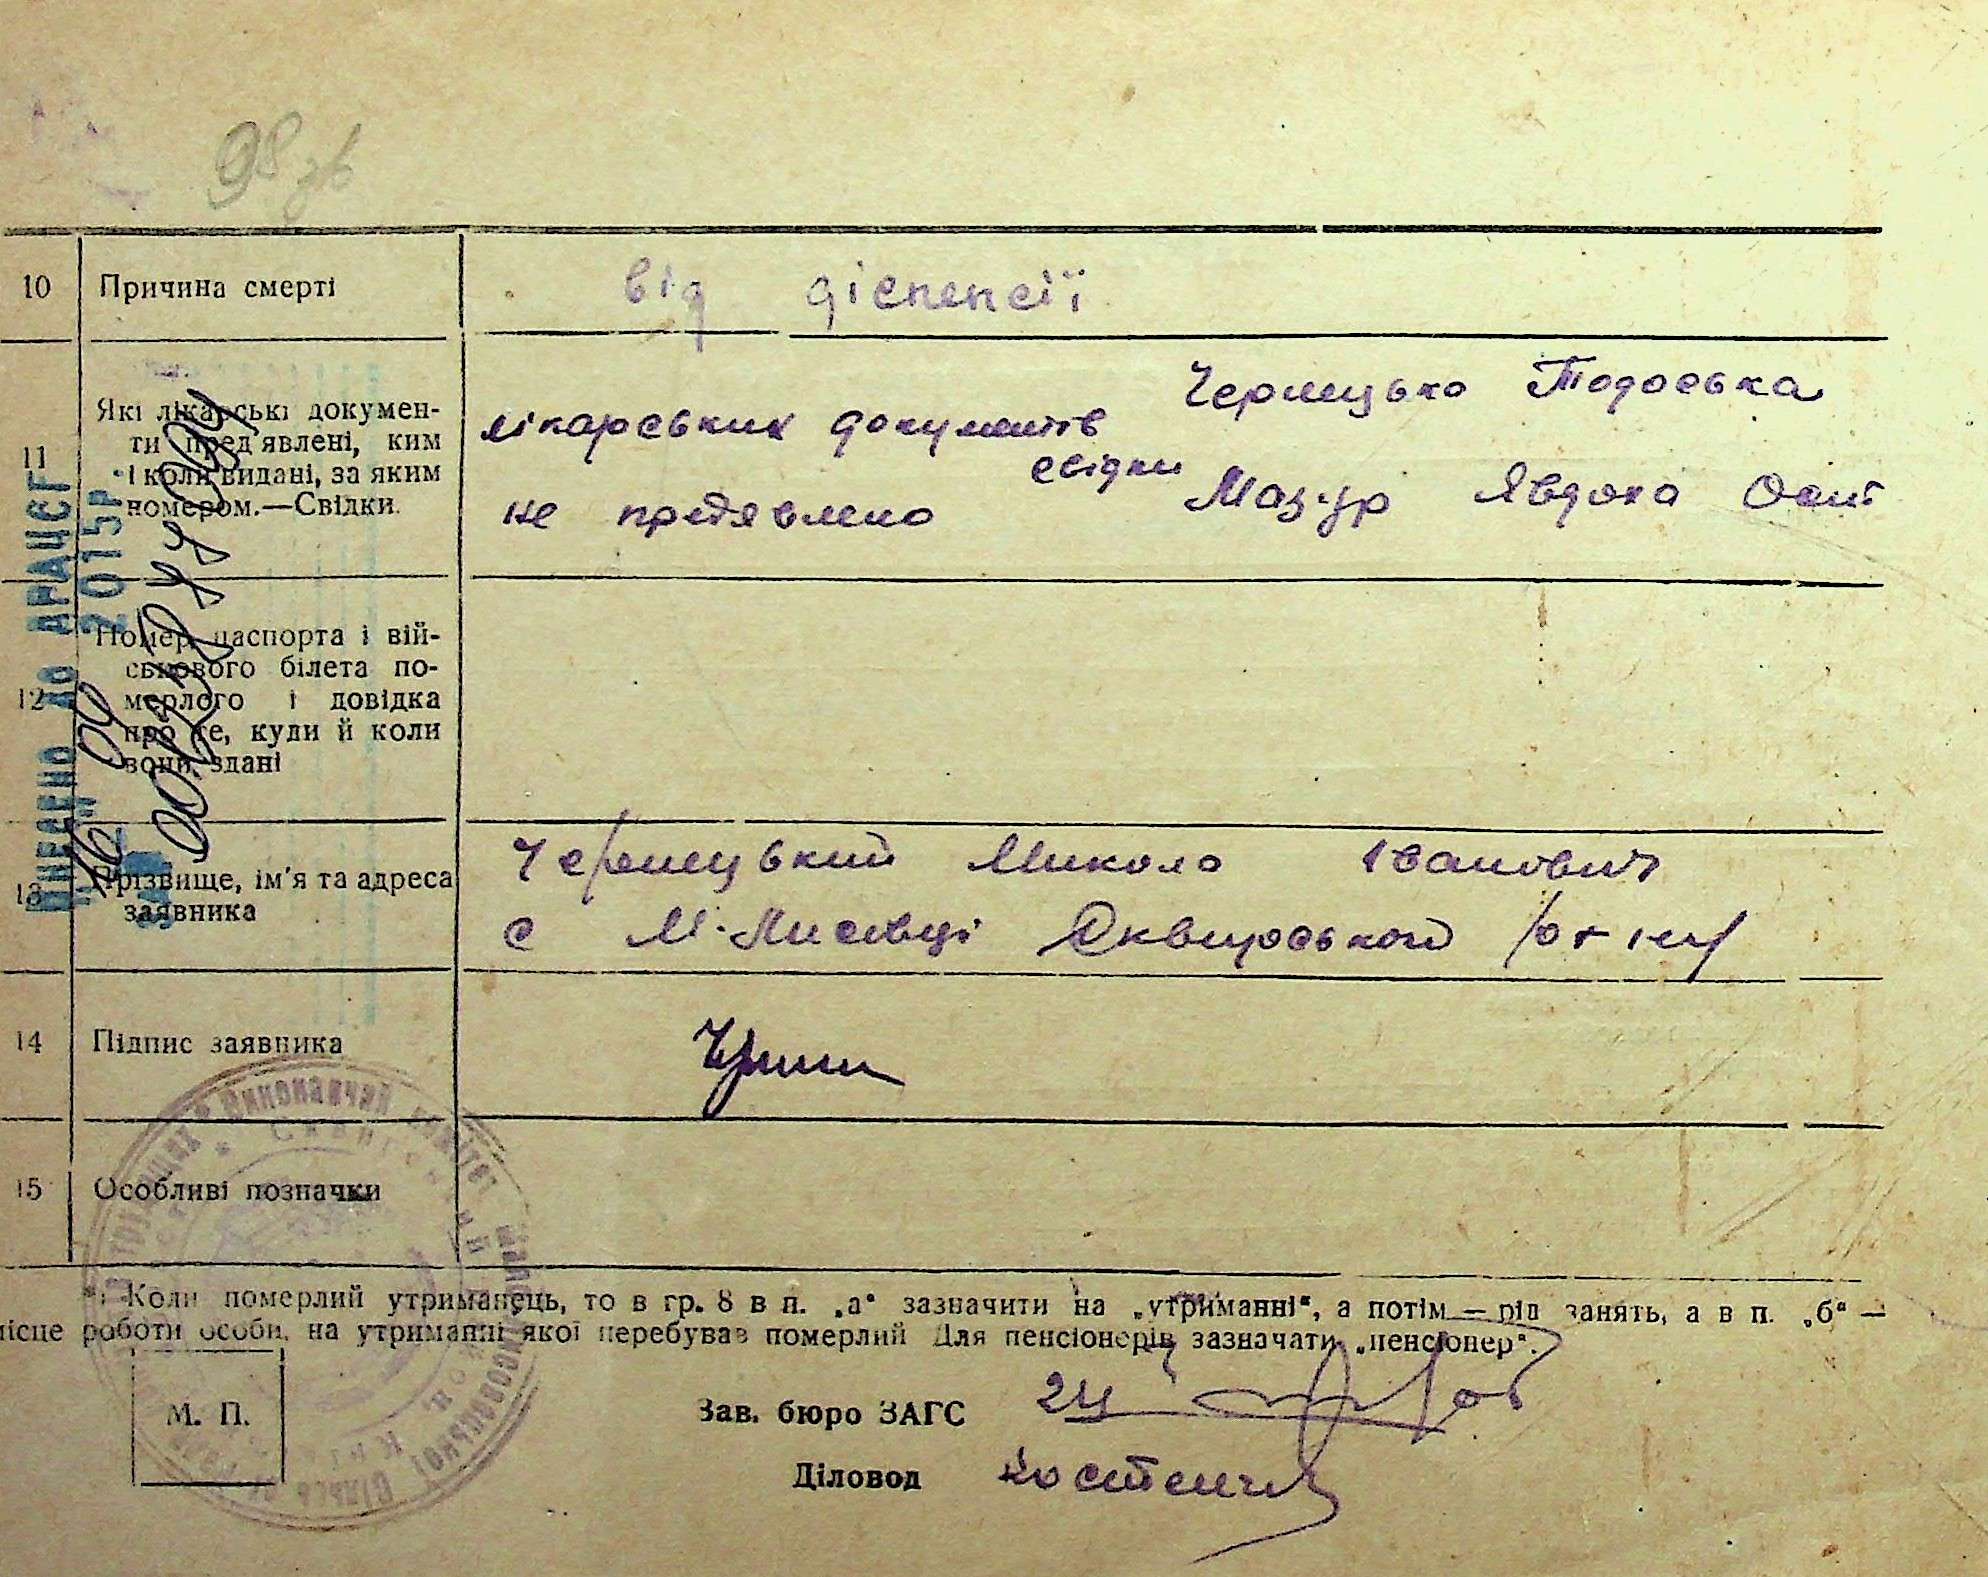 98 зв
10 Причина смерті від діспепсії
11 Які лікарські докумен-
ти пред'явлені, ким
і коли видані, за яким
номером.—Свідки.
Чернецько Тодоська
лікарських документів
свідки
Мазур Явдоха Осип
не предявлено
12 Номер паспорта і вій-
ськового білета по-
мерлого і довідка
про те, куди й коли
вони здані
13 Прізвище, ім'я та адреса
заявника
Чернецький Микола Іванович
с М-Лисівці Сквирського р-ну
14 Підпис заявника
15 Особливі позначки
ВНЕСЕНО ДО ДРАЦСГ
"16" 09 2015р
*) Коли померлий утриманець, то в гр. 8 в п. „а“ зазначити на „утриманні“, а потім — рід занять, а в п. „б“ —
місце роботи особи, на утриманні якої перебував померлий Для пенсіонерів зазначати „пенсіонер“.
М. П.
Зав. бюро ЗАГС
Діловод
виконавчий комітет